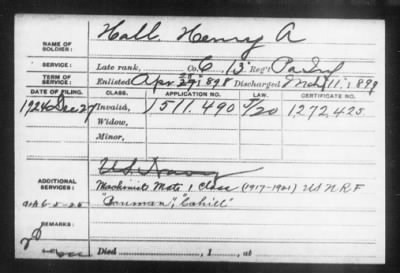 Hall. Henry A
NAME OF SOLDIER:
SERVICE: Late rank, Co. C 13 Reg't Pa Inf
TERM OF SERVICE: Enlisted Apr 1898 Discharged Mch 11, 1899
DATE OF FILING. CLASS. APPLICATION NO. LAW. CERTIFICATE NO.
1924 Dec 27 Invalid, 1511.490 5/20 1272,425
Widow,
Minor,
U.S. Navy
ADDITIONAL SERVICES: Machinist Mate 1 Class (1917-1921) US N.R.F
"Bauman", "Cahill"
REMARKS:
Died , 1 , at